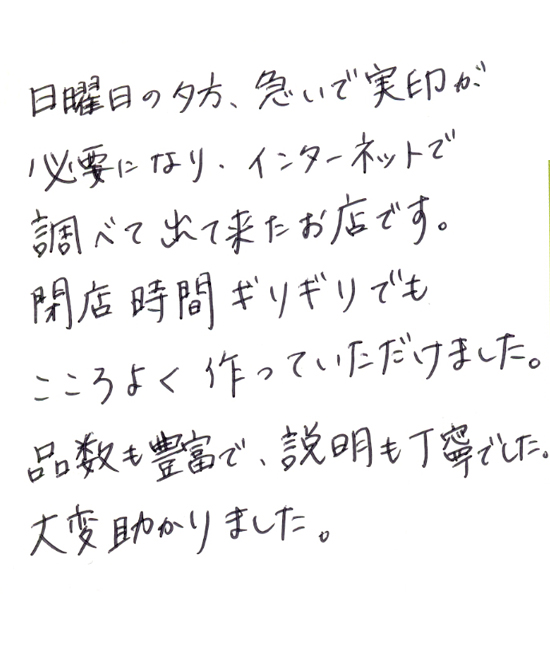 日曜日の夕方、急いで実印が
必要になり、インターネットで
調べて出て来たお店です。
閉店時間ギリギリでも
こころよく作っていただけました。
品数も豊富で、説明も丁寧でした。
大変助かりました。